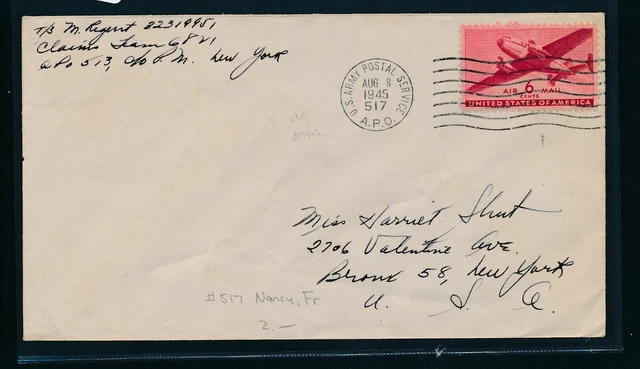 T/3 M. Regent 32319951
Claims Team 6821
APO 513, c/o P.M. New York
U.S. ARMY POSTAL SERVICE
AUG 8
1945
517
A.P.O.
AIR 6 MAIL
CENTS
UNITED STATES OF AMERICA
Miss Harriet Shut
2706 Valentine Ave.
Bronx 58, New York
U. S. A.
#517 Nancy, Fr
2.—